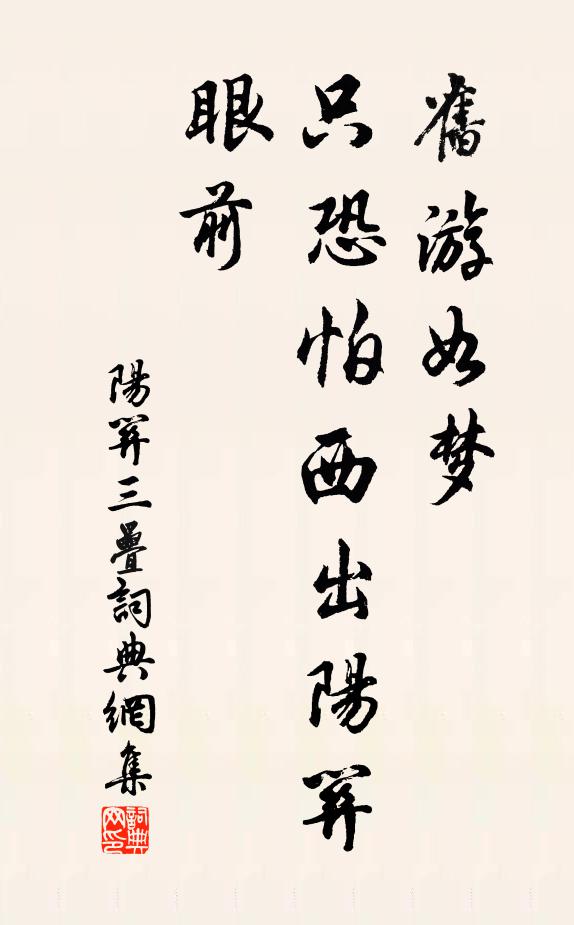 舊游如梦
只恐怕西出陽關
眼前
陽關三疊詞典網集
詞典网印